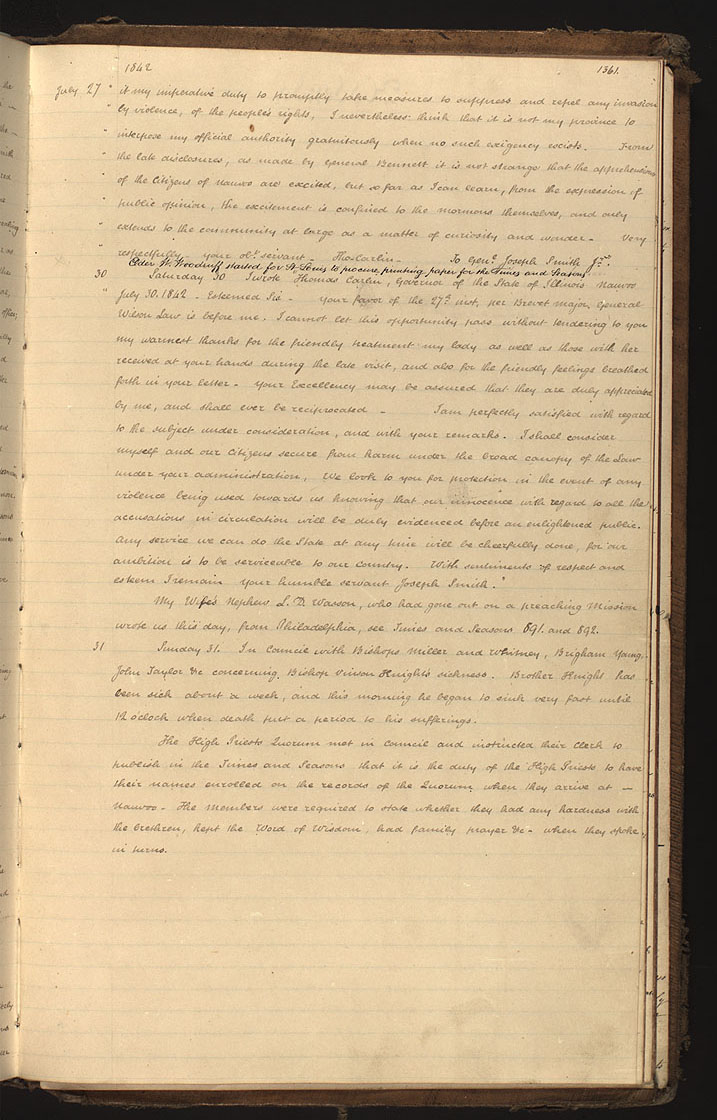 1842 1361.
July 27 " it my imperative duty to promptly take measures to suppress and repel any invasion
" by violence, of the people's rights, I nevertheless think that it is not my province to
" interpose my official authority gratuitously when no such exigency exists. From
" the late disclosures, as made by General Bennett it is not strange that the apprehensions
" of the Citizens of Nauvoo are excited, but so far as I can learn, from the expression of
" public opinion, the excitement is confined to the mormons themselves, and only
" extends to the community at large as a matter of curiosity and wonder - Very
" respectfully your obt. servant - Tho: Carlin - To Genl. Joseph Smith Jr.
Elder W. Woodruff started for St Louis to procure printing paper for the Times and Seasons
30 Saturday 30 I wrote Thomas Carlin, Governor of the State of Illinois Nauvoo
" July 30. 1842 - Esteemed Sir - your favor of the 27th inst, per Brevet major General
Wilson Law is before me. I cannot let this opportunity pass without tendering to you
my warmest thanks for the friendly treatment my lady as well as those with her
received at your hands during the late visit, and also for the friendly feelings breathed
forth in your letter - your Excellency may be assured that they are duly appreciated
by me, and shall ever be reciprocated - I am perfectly satisfied with regard
to the subject under consideration, and with your remarks. I shall consider
myself and our Citizens secure from harm under the broad canopy of the Law
under your administration, We look to you for protection in the event of any
violence being used towards us knowing that our innocence with regard to all the
accusations in circulation will be duly evidenced before an enlightened public.
Any service we can do the State at any time will be cheerfully done, for our
ambition is to be serviceable to our country. With sentiments of respect and
esteem I remain your humble servant Joseph Smith."
My Wife's Nephew L. D. Wasson, who had gone out on a preaching Mission
wrote us this day, from Philadelphia, see Times and Seasons 891. and 892.
31 Sunday 31. In Council with Bishops Miller and Whitney, Brigham Young,
John Taylor &c concerning Bishop Vinson Knight's sickness. Brother Knight has
been sick about a week, and this morning he began to sink very fast until
12 o'clock when death put a period to his sufferings.
The High Priests Quorum met in council and instructed their clerk to
publish in the Times and Seasons that it is the duty of the High Priests to have
their names enrolled on the records of the Quorum, when they arrive at —
Nauvoo - The members were required to state whether they had any hardness with
the brethren, kept the Word of Wisdom, had family prayer &c - when they spoke
in turns.